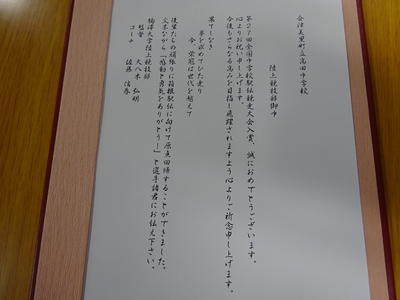 会津美里町立高田中学校
陸上競技部御中
第27回全国中学校駅伝競走大会入賞、誠におめでとうございます。
心よりお祝い申し上げます。
今後もさらなる高みを目指し飛躍されますよう心よりご祈念申し上げます。
果てしなき
夢を求めてひた走り
今、栄冠は世代を超えて
後輩たちの頑張りに箱根駅伝に向けて原点回帰することができました。
父末ながら「感動と勇気をありがとう!」と選手諸君にお伝え下さい。
駒澤大学陸上競技部
監督 大八木 弘明
コーチ 佐藤 信春